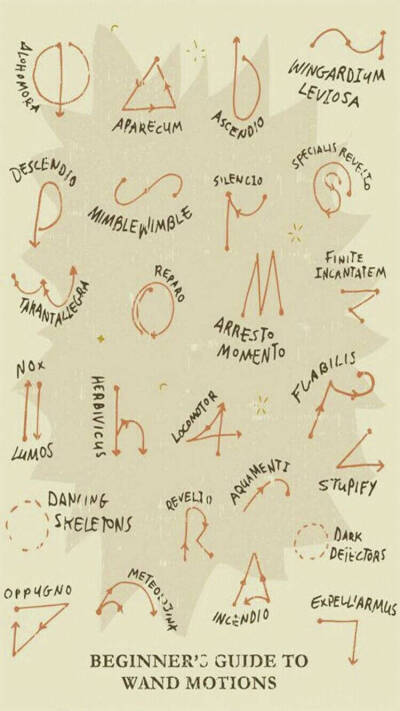 ALOHOMORA
APARECUM
ASCENDIO
WINGARDIUM
LEVIOSA
DESCENDIO
MIMBLEWIMBLE
SILENCIO
SPECIALIS REVELIO
TARANTALLEGRA
REPARO
ARRESTO
MOMENTO
FINITE
INCANTATEM
NOX
LUMOS
HERBIVICUS
LOCOMOTOR
FLABILIS
STUPIFY
DANCING
SKELETONS
REVELIO
AQUAMENTI
DARK
DETECTORS
OPPUGNO
METEOLOJINX
INCENDIO
EXPELLIARMUS
BEGINNER'S GUIDE TO
WAND MOTIONS